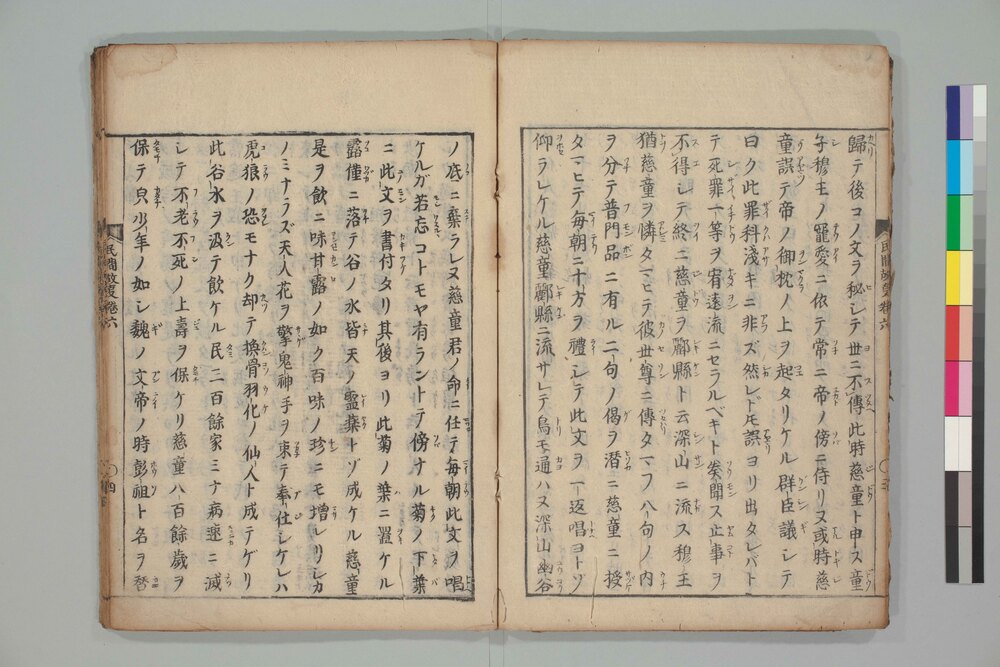 歸テ後コノ文ヲ秘シテ世ニ不傳此時慈童ト申ス童
子穆王ノ寵愛ニ依テ常ニ帝ノ傍ニ侍リヌ或時慈
童誤テ帝ノ御枕ノ上ヲ起タリケル群臣議シテ
曰ク此罪科淺キニ非ズ然レドモ誤ヨリ出タレバト
テ死罪一等ヲ宥遠流ニセラルベキト奏聞ス止事ヲ
不得シテ終ニ慈童ヲ酈縣ト云深山ニ流ス穆王
猶慈童ヲ憐タマヒテ彼世尊ニ傳タマフ八句ノ内
ヲ分テ普門品ニ有ル二句ノ偈ヲ潜ニ慈童ニ授
タマヒテ毎朝ニ十方ヲ禮シテ此文ヲ一返唱ヨトゾ
仰ラレケル慈童酈縣ニ流サレテ烏モ通ハヌ深山幽谷
ノ底ニ棄ラレヌ慈童君ノ命ニ任テ毎朝此文ヲ唱
ケルガ若忘コトモヤ有ラントテ傍ナル菊ノ下葉
ニ此文ヲ書付タリ其後ヨリ此菊ノ葉ニ置ケル
露僅ニ落テ谷ノ水皆天ノ靈藥トゾ成ケル慈童
是ヲ飲ニ味甘露ノ如ク百味ノ珍ニモ増レリシカ
ノミナラズ天人花ヲ擎鬼神手ヲ束テ奉仕シケレハ
虎狼ノ恐モナク却テ換骨羽化ノ仙人ト成テゲリ
此谷水ヲ汲テ飲ケル民三百餘家ミナ病速ニ滅
シテ不老不死ノ上壽ヲ保ケリ慈童八百餘歳ヲ
保テ只少年ノ如シ魏ノ文帝ノ時彭祖ト名ヲ替
民間故叓卷六
四